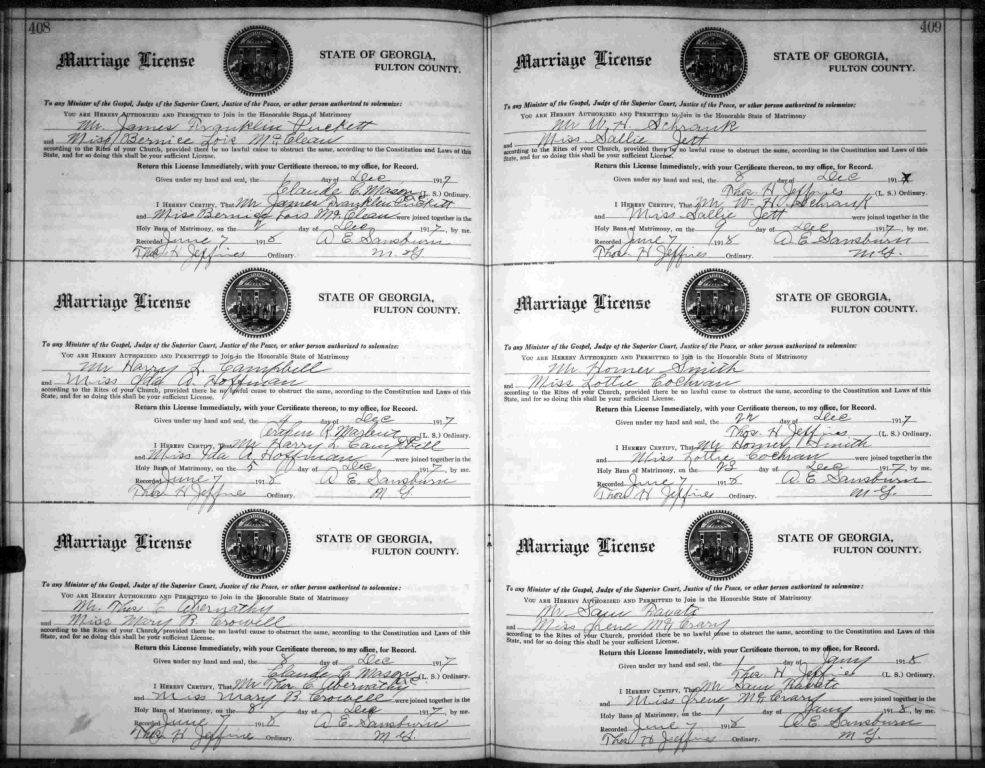 408
Marriage License
STATE OF GEORGIA,
FULTON COUNTY.
To any Minister of the Gospel, Judge of the Superior Court, Justice of the Peace, or other person authorized to solemnize:
YOU ARE HEREBY AUTHORIZED AND PERMITTED to Join in the Honorable State of Matrimony
Mr. James Franklin Puckett
and Miss Bernice Lois McClean
according to the Rites of your Church, provided there be no lawful cause to obstruct the same, according to the Constitution and Laws of this
State, and for so doing this shall be your sufficient License.
Return this License Immediately, with your Certificate thereon, to my office, for Record.
Given under my hand and seal, the day of Dec 1917
Claude C. Mason (L. S.) Ordinary.
I HEREBY CERTIFY, That Mr James Franklin Puckett
and Miss Bernice Lois McClean were joined together in the
Holy Bans of Matrimony, on the 2 day of Dec 1917, by me.
Recorded June 7 1918 A E Sansburn
Thos H Jeffries Ordinary. M. G
Marriage License
STATE OF GEORGIA,
FULTON COUNTY.
To any Minister of the Gospel, Judge of the Superior Court, Justice of the Peace, or other person authorized to solemnize:
YOU ARE HEREBY AUTHORIZED AND PERMITTED to Join in the Honorable State of Matrimony
Mr Harry L. Campbell
and Miss Ida A. Hoffman
according to the Rites of your Church, provided there be no lawful cause to obstruct the same, according to the Constitution and Laws of this
State, and for so doing this shall be your sufficient License.
Return this License Immediately, with your Certificate thereon, to my office, for Record.
Given under my hand and seal, the 4 day of Dec 1917
(L. S.) Ordinary.
I HEREBY CERTIFY, That Mr Harry L Campbell
and Miss Ida A. Hoffman were joined together in the
Holy Bans of Matrimony, on the 5 day of Dec 1917, by me.
Recorded June 7 1918 A E Sansburn
Thos H Jeffries Ordinary. M G
Marriage License
STATE OF GEORGIA,
FULTON COUNTY.
To any Minister of the Gospel, Judge of the Superior Court, Justice of the Peace, or other person authorized to solemnize:
YOU ARE HEREBY AUTHORIZED AND PERMITTED to Join in the Honorable State of Matrimony
Mr. Thos E Abernathy
and Miss Mary B. Crowell
according to the Rites of your Church, provided there be no lawful cause to obstruct the same, according to the Constitution and Laws of this
State, and for so doing this shall be your sufficient License.
Return this License Immediately, with your Certificate thereon, to my office, for Record.
Given under my hand and seal, the 8 day of Dec 1917
Claude C. Mason (L. S.) Ordinary.
I HEREBY CERTIFY, That Mr Thos E Abernathy
and Miss Mary B. Crowell were joined together in the
Holy Bans of Matrimony, on the 8 day of Dec 1917, by me.
Recorded June 7 1918 A E Sansburn
Thos H Jeffries Ordinary. M G
409
Marriage License
STATE OF GEORGIA,
FULTON COUNTY.
To any Minister of the Gospel, Judge of the Superior Court, Justice of the Peace, or other person authorized to solemnize:
YOU ARE HEREBY AUTHORIZED AND PERMITTED to Join in the Honorable State of Matrimony
Mr W. H. Schrank
and Miss Sallie Jett
according to the Rites of your Church, provided there be no lawful cause to obstruct the same, according to the Constitution and Laws of this
State, and for so doing this shall be your sufficient License.
Return this License Immediately, with your Certificate thereon, to my office, for Record.
Given under my hand and seal, the 8 day of Dec 191
Thos H Jeffries (L. S.) Ordinary.
I HEREBY CERTIFY, That Mr W. H Schrank
and Miss Sallie Jett were joined together in the
Holy Bans of Matrimony, on the 9 day of Dec 1917, by me.
Recorded June 7 1918 A E Sansburn
Thos. H Jeffries Ordinary. M G.
Marriage License
STATE OF GEORGIA,
FULTON COUNTY.
To any Minister of the Gospel, Judge of the Superior Court, Justice of the Peace, or other person authorized to solemnize:
YOU ARE HEREBY AUTHORIZED AND PERMITTED to Join in the Honorable State of Matrimony
Mr Homer Smith
and Miss Lottie Cochran
according to the Rites of your Church, provided there be no lawful cause to obstruct the same, according to the Constitution and Laws of this
State, and for so doing this shall be your sufficient License.
Return this License Immediately, with your Certificate thereon, to my office, for Record.
Given under my hand and seal, the 22 day of Dec 1917
Thos. H Jeffries (L. S.) Ordinary.
I HEREBY CERTIFY, That Mr Homer Smith
and Miss Lottie Cochran were joined together in the
Holy Bans of Matrimony, on the 23 day of Dec 1917, by me.
Recorded June 7 1918 A E Sansburn
Thos H Jeffries Ordinary. M G.
Marriage License
STATE OF GEORGIA,
FULTON COUNTY.
To any Minister of the Gospel, Judge of the Superior Court, Justice of the Peace, or other person authorized to solemnize:
YOU ARE HEREBY AUTHORIZED AND PERMITTED to Join in the Honorable State of Matrimony
Mr Sam
and Miss Irene McCrary
according to the Rites of your Church, provided there be no lawful cause to obstruct the same, according to the Constitution and Laws of this
State, and for so doing this shall be your sufficient License.
Return this License Immediately, with your Certificate thereon, to my office, for Record.
Given under my hand and seal, the 1 day of Jany 1918
Thos. H Jeffries (L. S.) Ordinary.
I HEREBY CERTIFY, That Mr Sam
and Miss Irene McCrary were joined together in the
Holy Bans of Matrimony, on the 1 day of Jany 1918, by me.
Recorded June 7 1918 A E Sansburn
Thos H Jeffries Ordinary. M G.